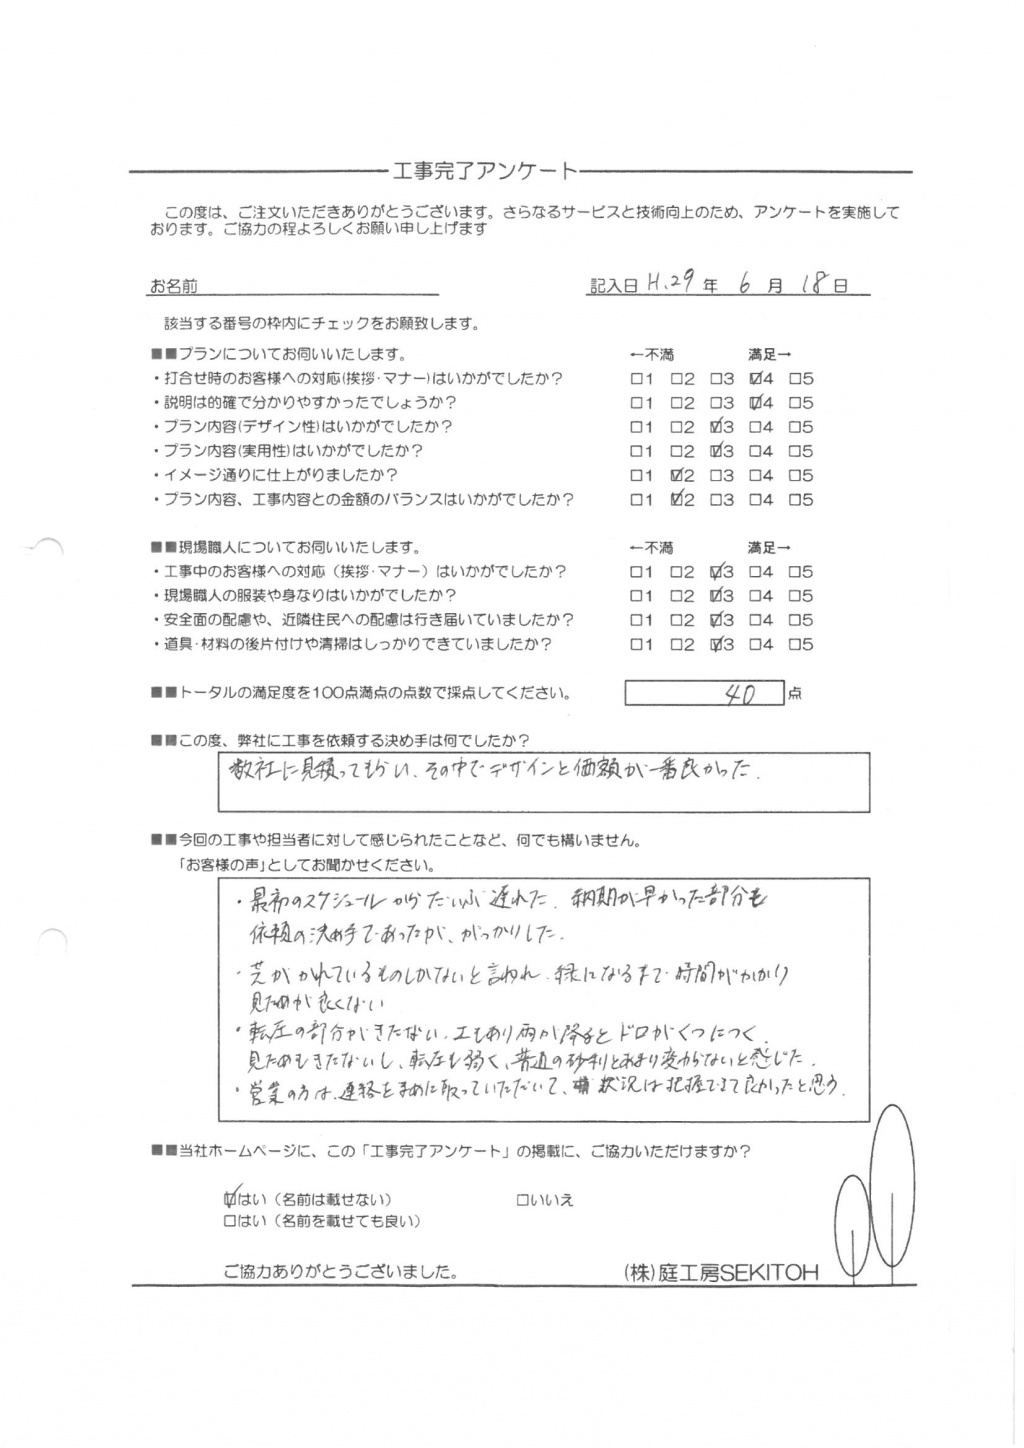 工事完了アンケート
この度は、ご注文いただきありがとうございます。さらなるサービスと技術向上のため、アンケートを実施して
おります。ご協力の程よろしくお願い申し上げます
お名前 記入日 H.29年 6月 18日
該当する番号の枠内にチェックをお願致します。
■■プランについてお伺いいたします。 ←不満 満足→
・打合せ時のお客様への対応(挨拶・マナー)はいかがでしたか? □1 □2 □3 ☑4 □5
・説明は的確で分かりやすかったでしょうか? □1 □2 □3 ☑4 □5
・プラン内容(デザイン性)はいかがでしたか? □1 □2 ☑3 □4 □5
・プラン内容(実用性)はいかがでしたか? □1 □2 ☑3 □4 □5
・イメージ通りに仕上がりましたか? □1 ☑2 □3 □4 □5
・プラン内容、工事内容との金額のバランスはいかがでしたか? □1 ☑2 □3 □4 □5
■■現場職人についてお伺いいたします。 ←不満 満足→
・工事中のお客様への対応（挨拶・マナー）はいかがでしたか? □1 □2 ☑3 □4 □5
・現場職人の服装や身なりはいかがでしたか? □1 □2 ☑3 □4 □5
・安全面の配慮や、近隣住民への配慮は行き届いていましたか? □1 □2 ☑3 □4 □5
・道具・材料の後片付けや清掃はしっかりできていましたか? □1 □2 ☑3 □4 □5
■■トータルの満足度を100点満点の点数で採点してください。 40 点
■■この度、弊社に工事を依頼する決め手は何でしたか?
数社に見積ってもらい、その中でデザインと価額が一番良かった.
■■今回の工事や担当者に対して感じられたことなど、何でも構いません。
「お客様の声」としてお聞かせください。
・最初のスケジュールからだいぶ遅れた. 納期が早かった部分も
依頼の決め手であったが、がっかりした.
・芝がかれているものしかないと言われ、緑になるまで時間がかかり
見ためが良くない
・転圧の部分がきたない. エもあり雨が降るとドロがくつにつく.
見ためもきたないし、転圧も弱く、普通の砂利とあまり変わらないと感じた.
・営業の方は、連絡をまめに取っていただいて、状況は把握できて良かったと思う.
■■当社ホームページに、この「工事完了アンケート」の掲載に、ご協力いただけますか?
☑はい（名前は載せない） □いいえ
□はい（名前を載せても良い）
ご協力ありがとうございました。 (株)庭工房SEKITOH